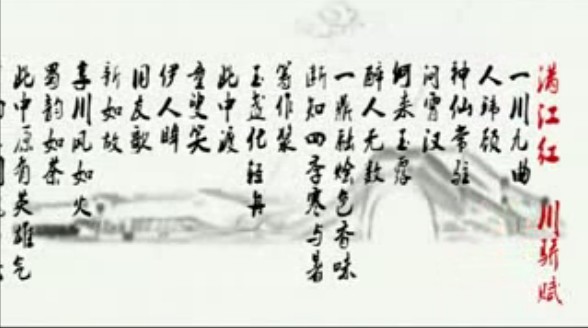 满江红 川骄赋
一川九曲
人玮硕
神仙常驻
问霄汉
何来玉露
醉人无数
一鼎融烩色香味
断知四季寒与暑
筹作桨
玉盏化轻舟
此中渡
童叟笑
伊人眸
旧友歌
新如故
享川风如火
蜀韵如茶
此中原有英雄气